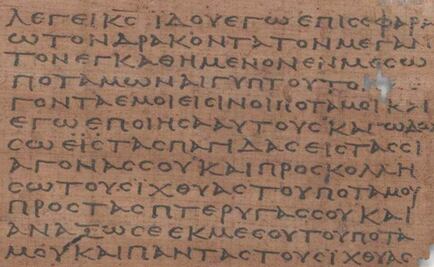 ΛΕΓΕΙΚ̅Ϲ̅ ΙΔΟΥΕΓΩΕΠΙϹΕΦΑΡΑ
ΩΤΟΝΔΡΑΚΟΝΤΑΤΟΝΜΕΓΑΝ
ΤΟΝΕΓΚΑΘΗΜΕΝΟΝΕΝΜΕϹΩ
ΠΟΤΑΜΩΝΑΙΓΥΠΤΟΥΤΟ
ΓΟΝΤΑΕΜΟΙΕΙϹΙΝΟΙΠΟΤΑΜΟΙΚΑΙ
ΕΓΩΕΠΟΙΗϹΑΑΥΤΟΥϹΚΑΙ
ϹΩΕΪϹΤΑϹΠΑΓΙΔΑϹΕΙϹΤΑϹϹΙ
ΑΓΟΝΑϹϹΟΥΚΑΙΠΡΟϹΚΟΛΛΗ
ϹΩΤΟΥϹΙΧΘΥΑϹΤΟΥΠΟΤΑΜΟΥ
ΠΡΟϹΤΑϹΠΤΕΡΥΓΑϹϹΟΥΚΑΙ
ΑΝΑΞΩϹΕΕΚΜΕϹΟΥΤΟΥΠΟΤΑ
ΜΟΥΚΑΙΠΑΝΤΑϹΤΟΥϹΙΧΘΥΑϹ